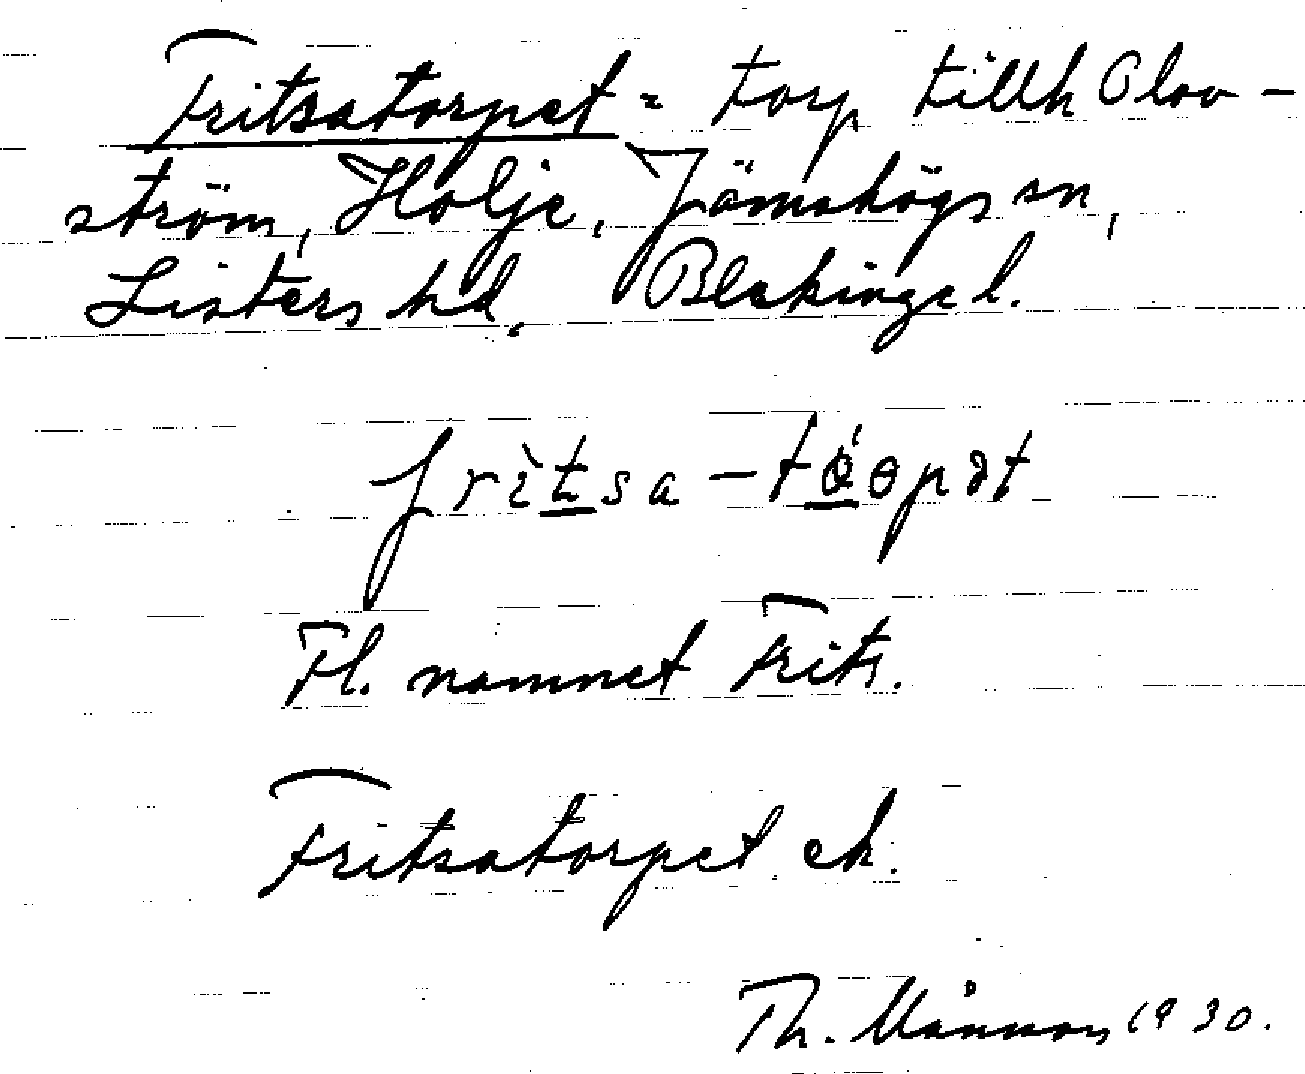 Fritsatorpet = torp tillh Olov-
ström, Holje, Jämshögs sn,
Listers hd. Blekinge l.
frìtsa-tǿɵpət
Fl. namnet Frits.
Fritsatorpet ek.
Th. Månsson 1930.